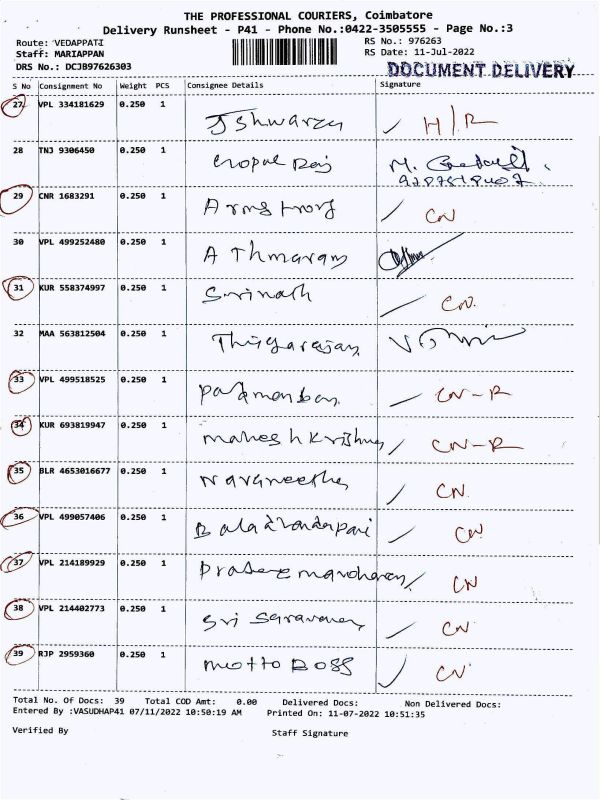 THE PROFESSIONAL COURIERS, Coimbatore
Delivery Runsheet - P41 - Phone No.:0422-3505555 - Page No.:3
Route: VEDAPPATI RS No.: 976263
Staff: MARIAPPAN RS Date: 11-Jul-2022
DRS No.: DCJB97626303 DOCUMENT DELIVERY
S No Consignment No Weight PCS Consignee Details Signature
27 VPL 334181629 0.250 1 H/R
28 TNJ 9306450 0.250 1 Gopal Raj
29 CNR 1683291 0.250 1 Armstrong CN
30 VPL 499252480 0.250 1 Athmaram
31 KUR 558374997 0.250 1 Srinath CN
32 MAA 563812504 0.250 1 Thiyagarajan
33 VPL 499518525 0.250 1 CN-R
34 KUR 693819947 0.250 1 Mahesh Krishna CN-R
35 BLR 4653016677 0.250 1 Navaneetha CN
36 VPL 499057406 0.250 1 CN
37 VPL 214189929 0.250 1 CN
38 VPL 214402773 0.250 1 Sri Saravana CN
39 RJP 2959360 0.250 1 CN
Total No. Of Docs: 39 Total COD Amt: 0.00 Delivered Docs: Non Delivered Docs:
Entered By :VASUDHAP41 07/11/2022 10:50:19 AM Printed On: 11-07-2022 10:51:35
Verified By Staff Signature